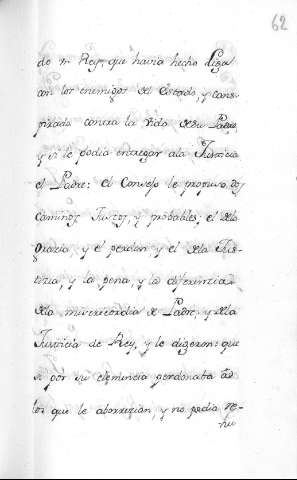 62
do un Rey, que havia hecho Liga
con los enemigos del Estado, y cons-
pirado contra la Vida de su Padre
y si le podia entregar ala Justicia
el Padre: el Consejo le propuso dos
Caminos Justos, y probables, el dela
Gracia, y el perdon, y el dela Jus-
ticia, y la pena, y la diferencia
dela misericordia de Padre, y dela
Justicia de Rey, y le digeron: que
si por su clemencia perdonaba a
los que le aborrecian, y no podia re-
hu